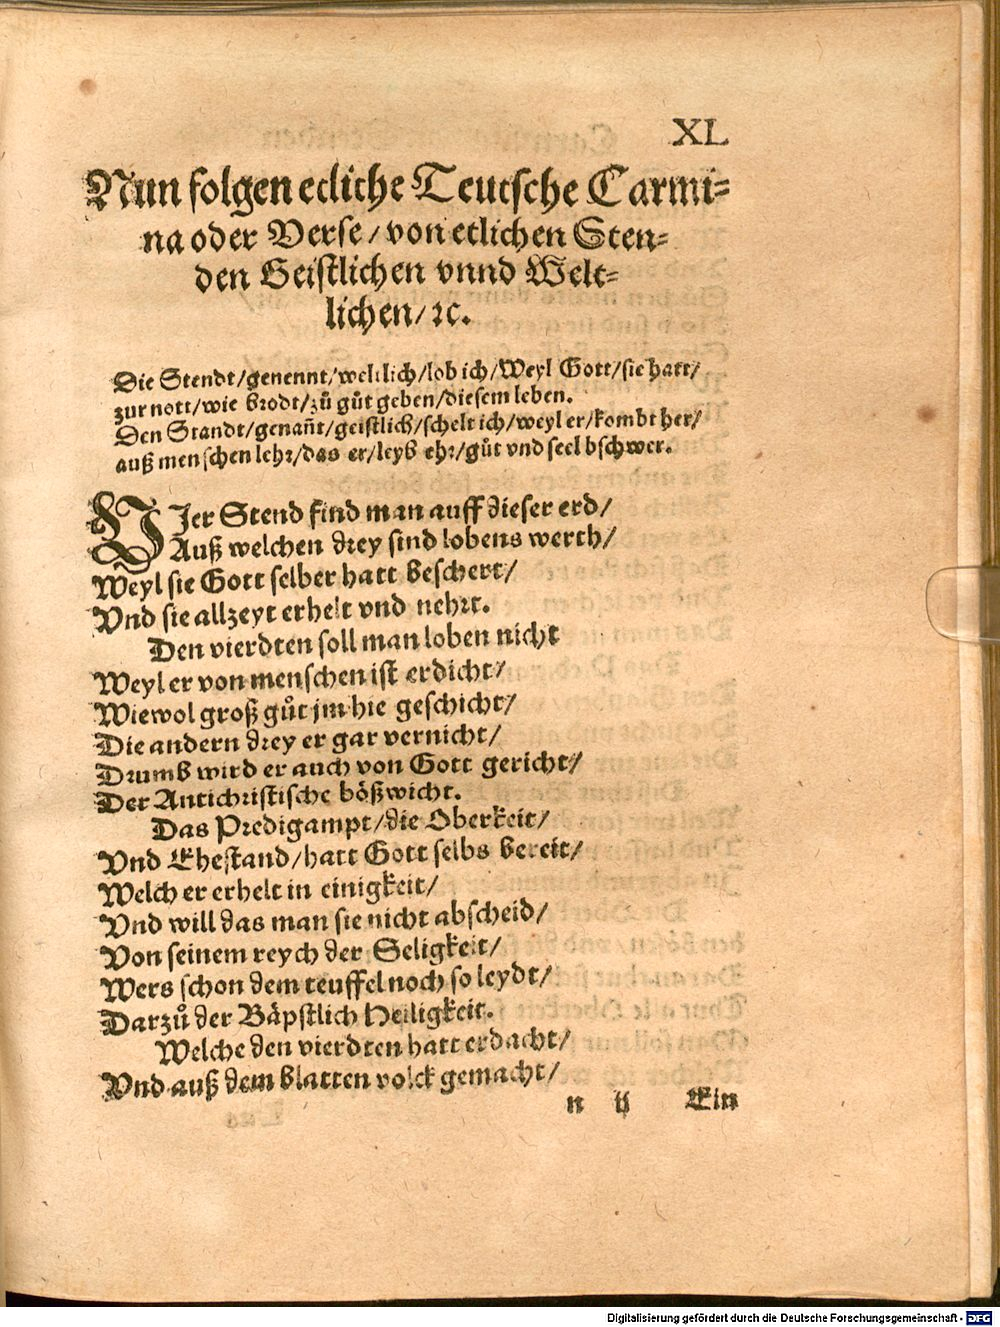 XL
Nun folgen etliche Teutsche Carmi-
na oder Verse/von etlichen Sten-
den Geistlichen vnnd Welt-
lichen/ꝛc.
Die Stendt/genennt/weltlich/lob ich/Weyl Gott/sie hatt/
zur nott/wie brodt/zů gůt geben/diesem leben.
Den Standt/genañt/geistlich/schelt ich/weyl er/kombt her/
auß menschen lehr/das er/leyb ehr/gůt vnd seel bschwer.
VJer Stend find man auff dieser erd/
Auß welchen drey sind lobens werth/
Weyl sie Gott selber hatt beschert/
Vnd sie allzeyt erhelt vnd nehrt.
Den vierdten soll man loben nicht
Weyl er von menschen ist erdicht/
Wiewol groß gůt jm hie geschicht/
Die andern drey er gar vernicht/
Drumb wird er auch von Gott gericht/
Der Antichristische bößwicht.
Das Predigampt/die Oberkeit/
Vnd Ehestand/hatt Gott selbs bereit/
Welch er erhelt in einigkeit/
Vnd will das man sie nicht abscheid/
Von seinem reych der Seligkeit/
Wers schon dem teuffel noch so leydt/
Darzů der Bäpstlich Heiligkeit.
Welche den vierdten hatt erdacht/
Vnd auß dem blatten volck gemacht/
n ij Ein
Digitalisierung gefördert durch die Deutsche Forschungsgemeinschaft - DFG